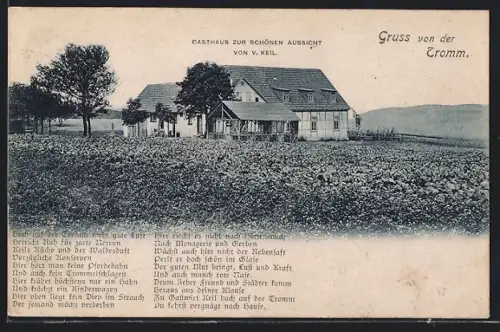 GASTHAUS ZUR SCHÖNEN AUSSICHT
VON V. KEIL.
Gruss von der
Tromm.
auf der Tromm weht gute Luft
Herrscht Ruh für zarte Nerven
Keils Küche und der Waldesduft
Vorzügliche Konserven
Hier hört man keine Pferdebahn
Und auch kein Trommelschlagen
Hier krähet höchstens nur ein Hahn
Und krächzt ein Kinderwagen
Hier oben liegt kein Dieb im Strauch
Der jemand möcht verderben
Hier riecht es nicht nach
Nach Menagerie und Gerben
Wächst auch hier nicht der Rebensaft
Perlt er doch schön im Glase
Der guten Mut bringt, Lust und Kraft
Und auch manch rote Nase.
Drum lieber Freund und Städter komm
Heraus aus deiner Klause
Zu Gastwirt Keil hoch auf der Tromm
Du kehrst vergnügt nach Hause.